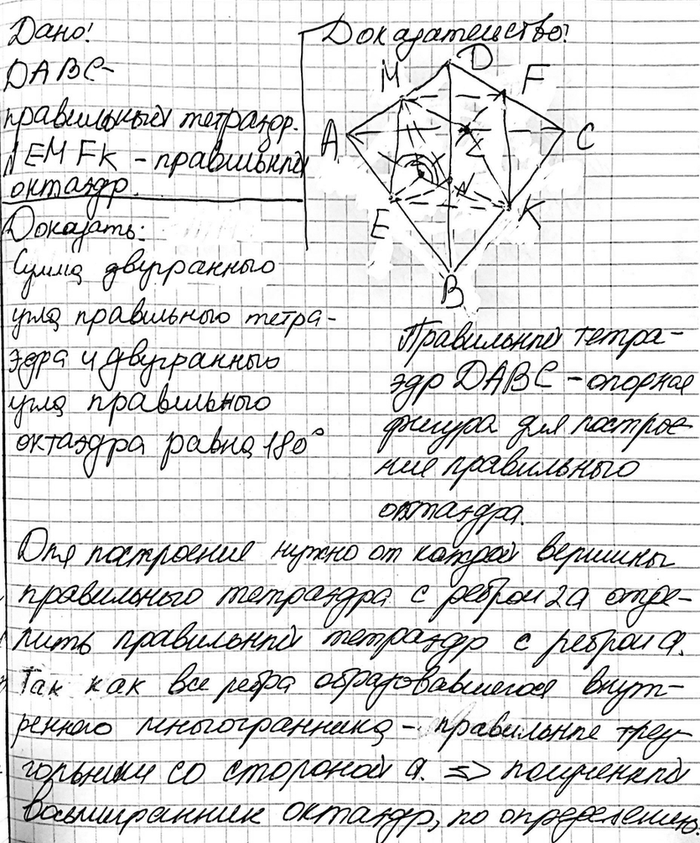 Дано!
DABC-
правильный тетраэдр.
NEMFK - правильный
октаэдр.
Доказать:
Сумма двугранного
угла правильного тетра-
эдра и двугранного
угла правильного
октаэдра равна 180°
Доказательство:
D
M
F
A
C
Z
N
E
K
B
Правильный тетра-
эдр DABC - опорная
фигура для построе-
ние правильного
октаэдра.
Для построение нужно от каждой вершины
правильного тетраэдра с ребром 2a отде-
лить правильный тетраэдр с ребром a.
Так как все ребра образовавшегося внут-
реннего многогранника - правильные треу-
гольники со стороной a. => полученный
восьмигранник октаэдр, по определению.